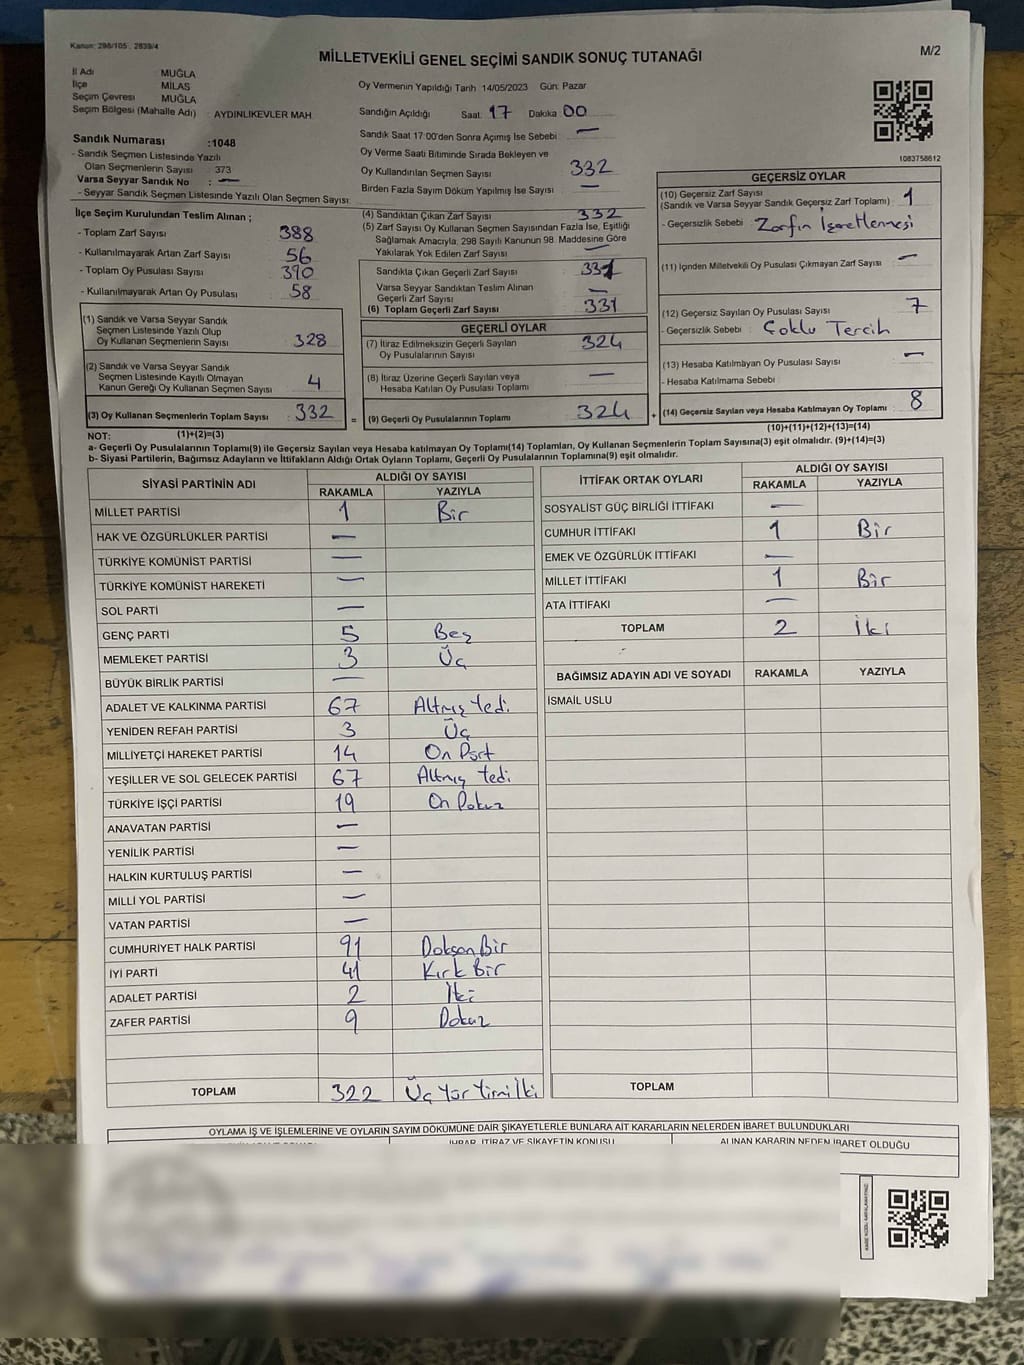 Kanun: 298/105 , 2839/4
MİLLETVEKİLİ GENEL SEÇİMİ SANDIK SONUÇ TUTANAĞI
M/2
İl Adı : MUĞLA
İlçe : MİLAS
Seçim Çevresi : MUĞLA
Seçim Bölgesi (Mahalle Adı) : AYDINLIKEVLER MAH
Sandık Numarası :1048
- Sandık Seçmen Listesinde Yazılı
Olan Seçmenlerin Sayısı : 373
Varsa Seyyar Sandık No : —
- Seyyar Sandık Seçmen Listesinde Yazılı Olan Seçmen Sayısı:
Oy Vermenin Yapıldığı Tarih 14/05/2023 Gün: Pazar
Sandığın Açıldığı Saat 17 Dakika 00
Sandık Saat 17:00'den Sonra Açımış İse Sebebi —
Oy Verme Saati Bitiminde Sırada Bekleyen ve
Oy Kullandırılan Seçmen Sayısı 332
Birden Fazla Sayım Döküm Yapılmış İse Sayısı —
1083758612
İlçe Seçim Kurulundan Teslim Alınan ;
- Toplam Zarf Sayısı 388
- Kullanılmayarak Artan Zarf Sayısı 56
- Toplam Oy Pusulası Sayısı 390
- Kullanılmayarak Artan Oy Pusulası 58
(1) Sandık ve Varsa Seyyar Sandık
Seçmen Listesinde Yazılı Olup
Oy Kullanan Seçmenlerin Sayısı 328
(2) Sandık ve Varsa Seyyar Sandık
Seçmen Listesinde Kayıtlı Olmayan
Kanun Gereği Oy Kullanan Seçmen Sayısı 4
(3) Oy Kullanan Seçmenlerin Toplam Sayısı : 332 =
(1)+(2)=(3)
(4) Sandıktan Çıkan Zarf Sayısı 332
(5) Zarf Sayısı Oy Kullanan Seçmen Sayısından Fazla İse, Eşitliği
Sağlamak Amacıyla; 298 Sayılı Kanunun 98. Maddesine Göre
Yakılarak Yok Edilen Zarf Sayısı —
Sandıkta Çıkan Geçerli Zarf Sayısı 331
Varsa Seyyar Sandıktan Teslim Alınan
Geçerli Zarf Sayısı —
(6) Toplam Geçerli Zarf Sayısı 331
GEÇERLİ OYLAR
(7) İtiraz Edilmeksizin Geçerli Sayılan
Oy Pusulalarının Sayısı 324
(8) İtiraz Üzerine Geçerli Sayılan veya
Hesaba Katılan Oy Pusulası Toplamı —
(9) Geçerli Oy Pusulalarının Toplamı 324 +
GEÇERSİZ OYLAR
(10) Geçersiz Zarf Sayısı
(Sandık ve Varsa Seyyar Sandık Geçersiz Zarf Toplamı) : 1
- Geçersizlik Sebebi Zarfın İşaretlenmesi
(11) İçinden Milletvekili Oy Pusulası Çıkmayan Zarf Sayısı —
(12) Geçersiz Sayılan Oy Pusulası Sayısı 7
- Geçersizlik Sebebi : Çoklu Tercih
(13) Hesaba Katılmayan Oy Pusulası Sayısı —
- Hesaba Katılmama Sebebi
(14) Geçersiz Sayılan veya Hesaba Katılmayan Oy Toplamı : 8
(10)+(11)+(12)+(13)=(14)
NOT:
a- Geçerli Oy Pusulalarının Toplamı(9) ile Geçersiz Sayılan veya Hesaba katılmayan Oy Toplamı(14) Toplamları, Oy Kullanan Seçmenlerin Toplam Sayısına(3) eşit olmalıdır. (9)+(14)=(3)
b- Siyasi Partilerin, Bağımsız Adayların ve İttifakların Aldığı Ortak Oyların Toplamı, Geçerli Oy Pusulalarının Toplamına(9) eşit olmalıdır.
SİYASİ PARTİNİN ADI ALDIĞI OY SAYISI
RAKAMLA YAZIYLA
MİLLET PARTİSİ 1 Bir
HAK VE ÖZGÜRLÜKLER PARTİSİ —
TÜRKİYE KOMÜNİST PARTİSİ —
TÜRKİYE KOMÜNİST HAREKETİ —
SOL PARTİ —
GENÇ PARTİ 5 Beş
MEMLEKET PARTİSİ 3 Üç
BÜYÜK BİRLİK PARTİSİ —
ADALET VE KALKINMA PARTİSİ 67 Altmış Yedi
YENİDEN REFAH PARTİSİ 3 Üç
MİLLİYETÇİ HAREKET PARTİSİ 14 On Dört
YEŞİLLER VE SOL GELECEK PARTİSİ 67 Altmış Yedi
TÜRKİYE İŞÇİ PARTİSİ 19 On Dokuz
ANAVATAN PARTİSİ —
YENİLİK PARTİSİ —
HALKIN KURTULUŞ PARTİSİ —
MİLLİ YOL PARTİSİ —
VATAN PARTİSİ —
CUMHURİYET HALK PARTİSİ 91 Doksan Bir
İYİ PARTİ 41 Kırk Bir
ADALET PARTİSİ 2 İki
ZAFER PARTİSİ 9 Dokuz
TOPLAM 322 Üç Yüz Yirmi İki
İTTİFAK ORTAK OYLARI ALDIĞI OY SAYISI
RAKAMLA YAZIYLA
SOSYALİST GÜÇ BİRLİĞİ İTTİFAKI —
CUMHUR İTTİFAKI 1 Bir
EMEK VE ÖZGÜRLÜK İTTİFAKI —
MİLLET İTTİFAKI 1 Bir
ATA İTTİFAKI —
TOPLAM 2 İki
BAĞIMSIZ ADAYIN ADI VE SOYADI RAKAMLA YAZIYLA
İSMAİL USLU
TOPLAM
OYLAMA İŞ VE İŞLEMLERİNE VE OYLARIN SAYIM DÖKÜMÜNE DAİR ŞİKAYETLERLE BUNLARA AİT KARARLARIN NELERDEN İBARET BULUNDUKLARI
İHBAR, İTİRAZ VE ŞİKAYETİN KONUSU ALINAN KARARIN NEDEN İBARET OLDUĞU